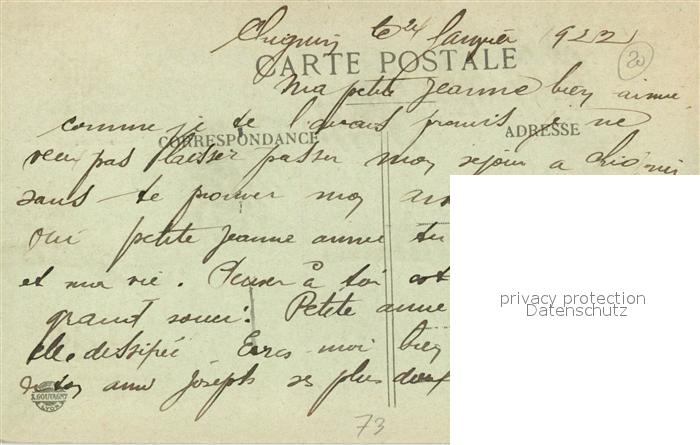 Chignin le 24 Janvier 1922
20
CARTE POSTALE
Ma petite Jeanne bien aimée
comme je te l'avais promis je ne
CORRESPONDANCE
ADRESSE
veux pas laisser passer mon sejour a Chignin
sans te prouver mon
Oui petite Jeanne aimée tu
et ma vie. Penser à toi est
privacy protection
Datenschutz
grand souci. Petite aimée
elle dissipée Ecris-moi bien
de ton ami Joseph ses plus doux
S. GOUTAGNY
LYON
73